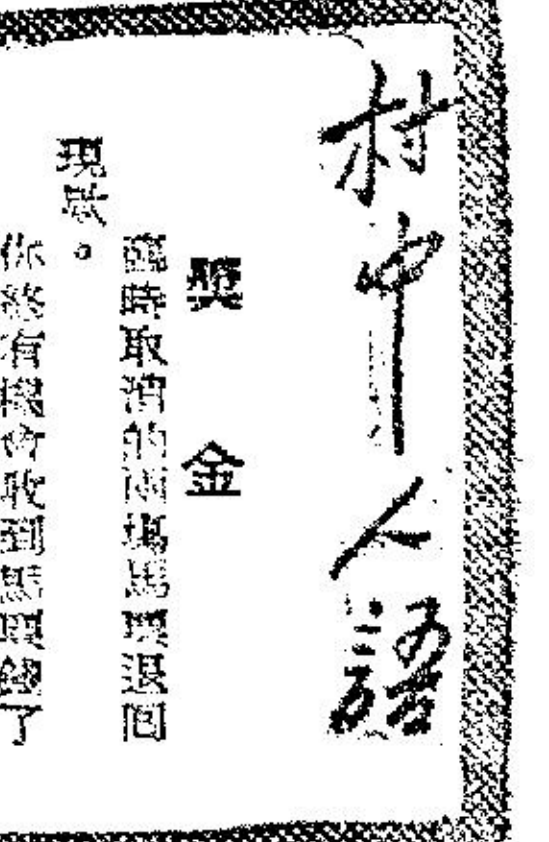 村中人語
獎金
臨時取消的兩場馬票退回
現款。
你終有機會收到馬票錢了